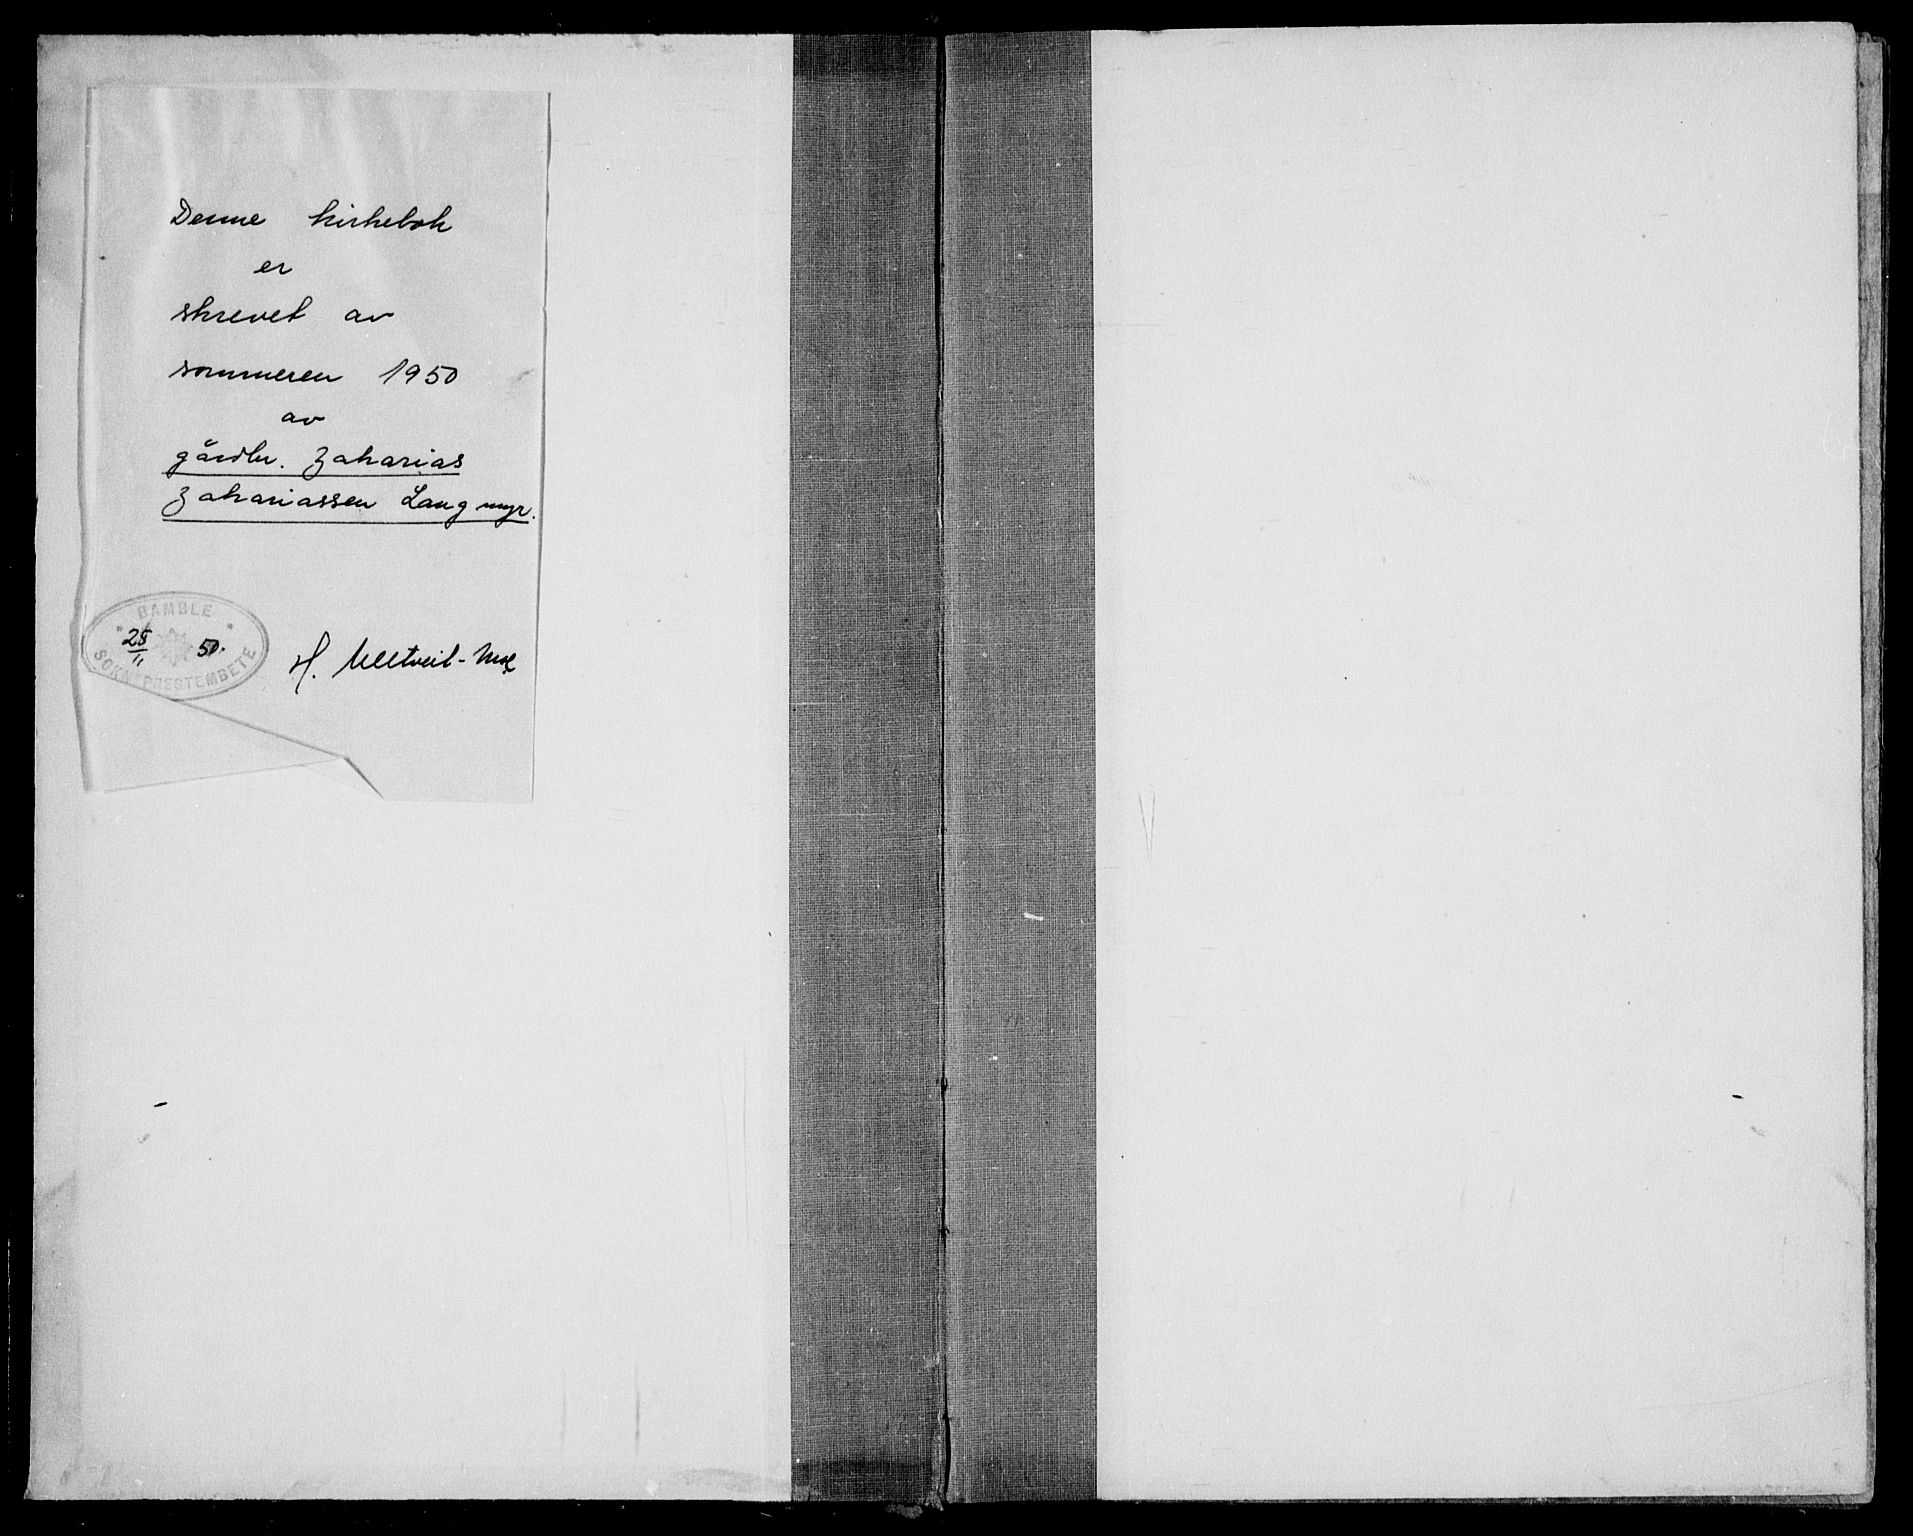 Denne kirkebok
er
skrevet av
sommeren 1950
av
gårdbr. Zakarias
Zakariassen Langmyr.
BAMBLE
25/11 50.
SOKNEPRESTEMBETE
H.